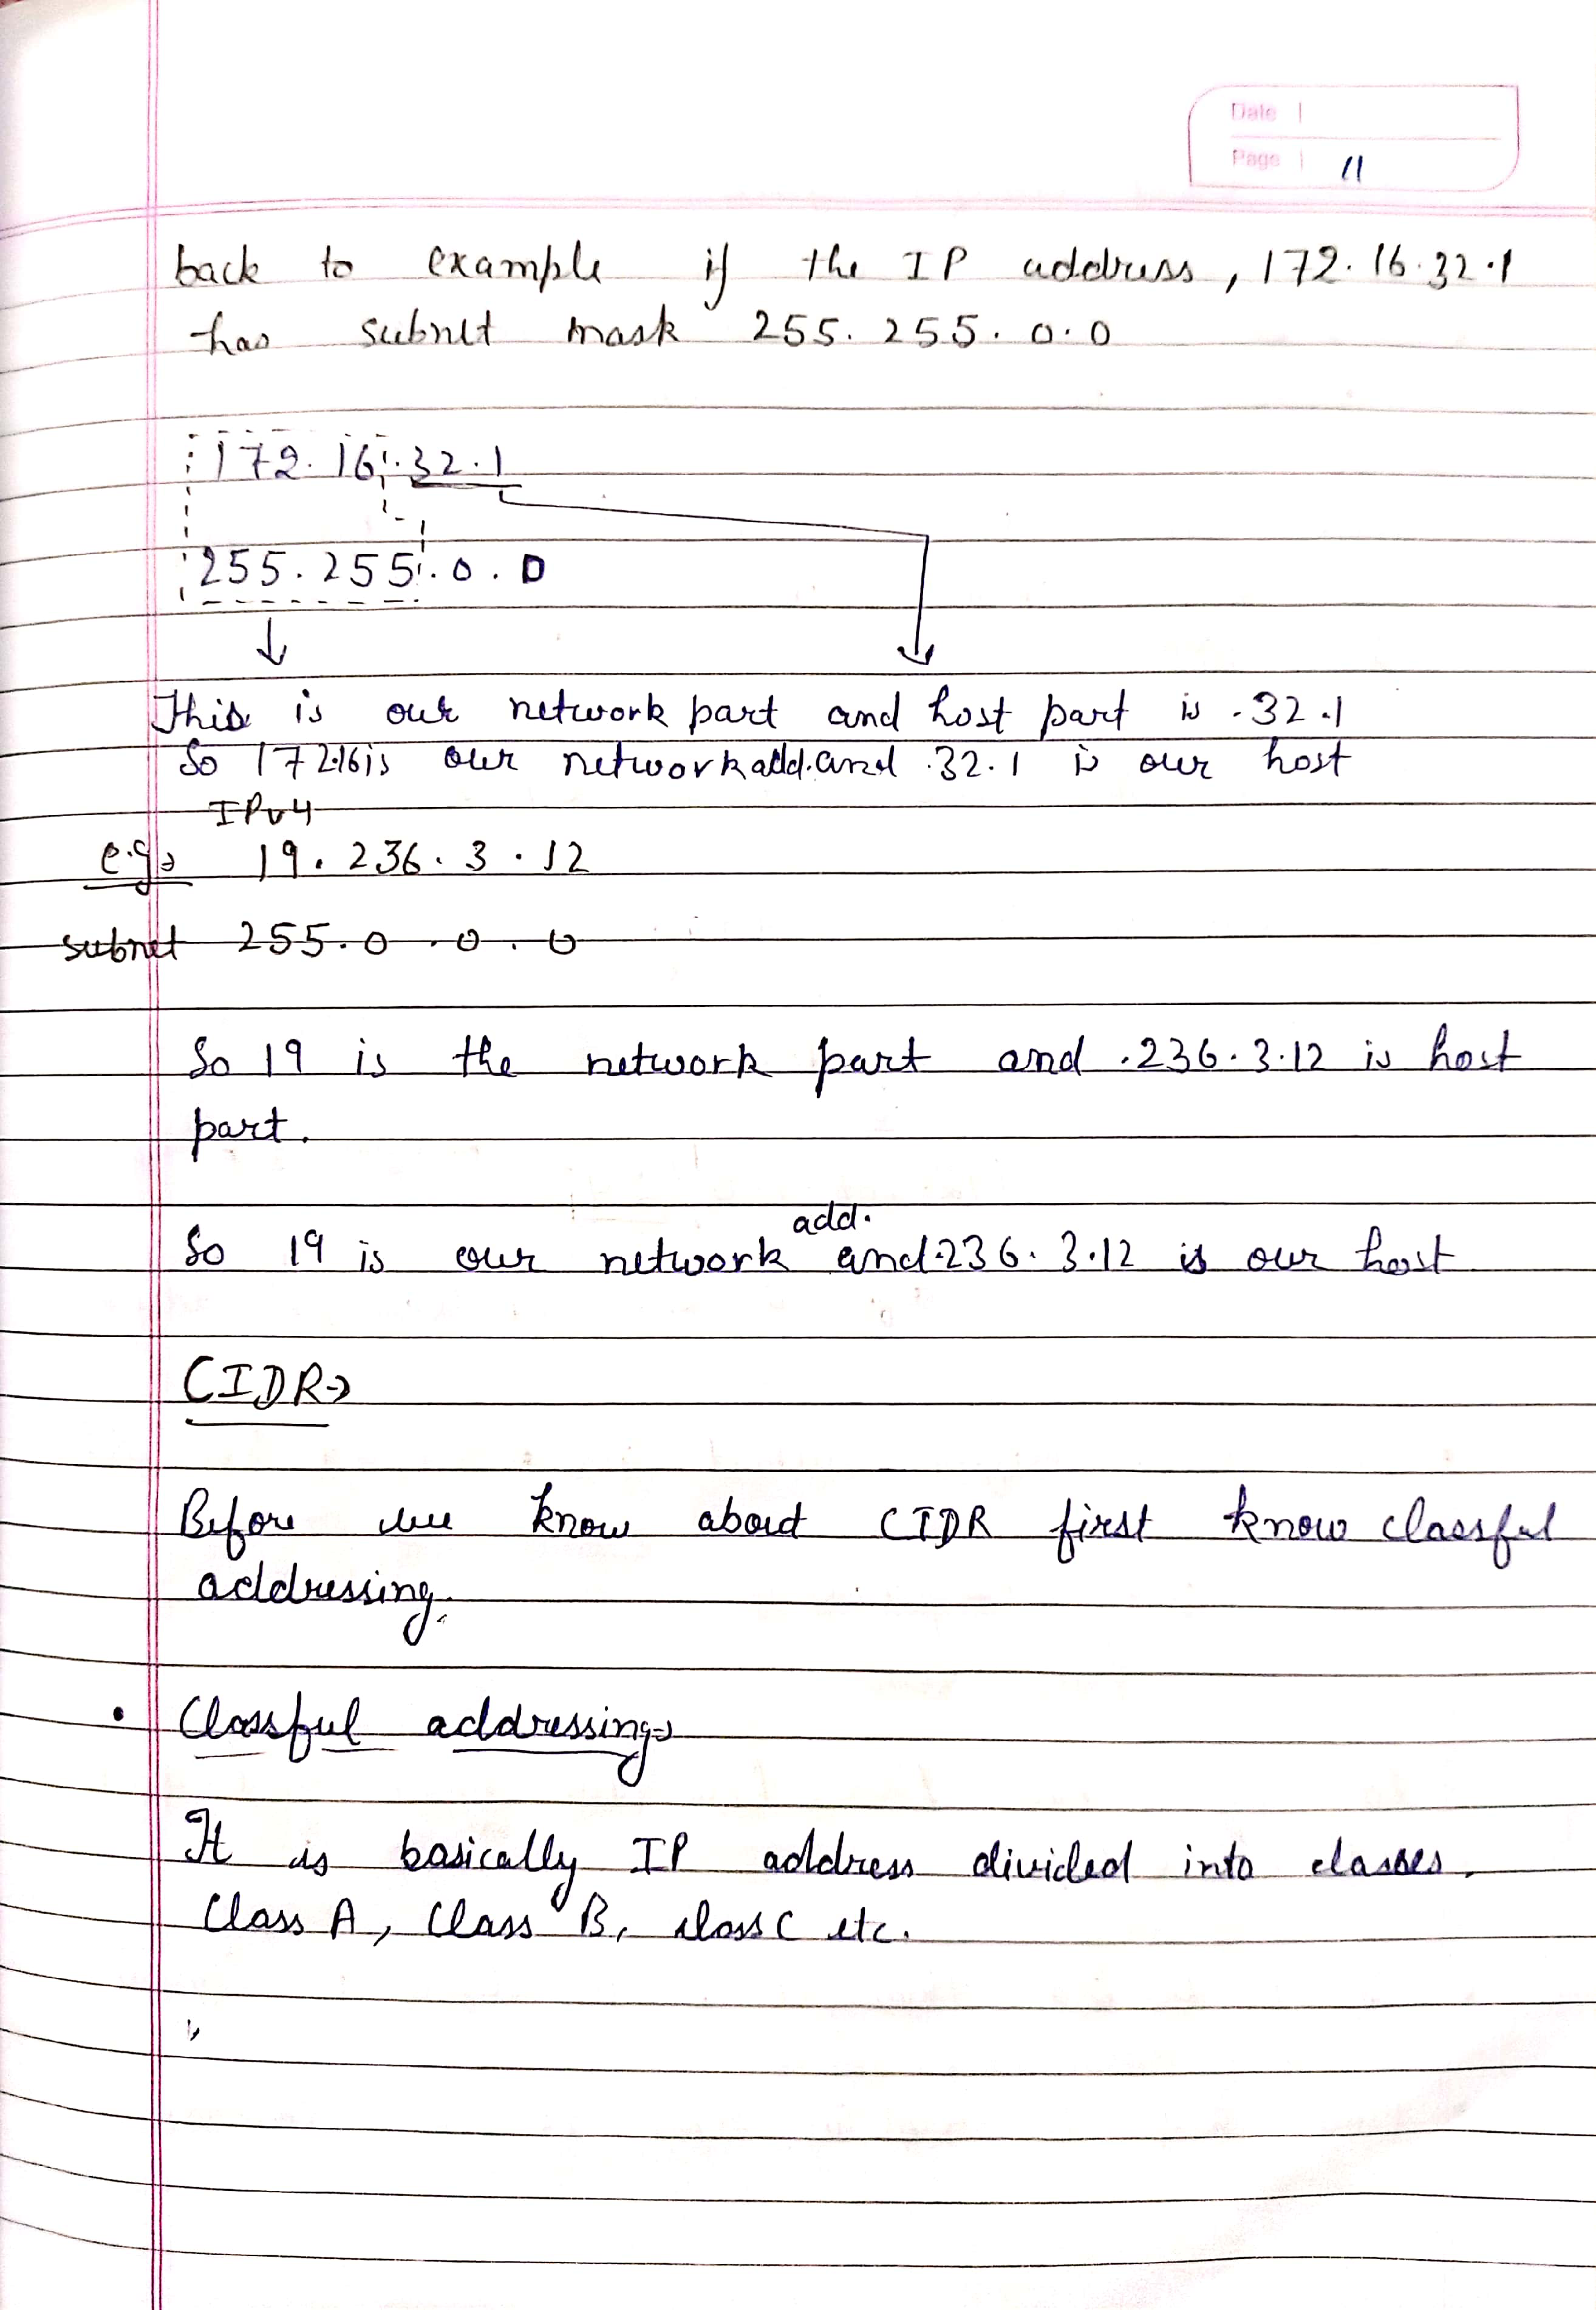 Date
Page 11
back to example if the IP address, 172.16.32.1
has subnet mask 255.255.0.0
172.16.32.1
255.255.0.0
This is our network part and host part is .32.1
So 172.16 is our network add. and .32.1 is our host
IPv4
e.g→ 19.236.3.12
subnet 255.0.0.0
So 19 is the network part and .236.3.12 is host
part.
So 19 is our network add. and .236.3.12 is our host
CIDR→
Before we know about CIDR first know classful
addressing.
• Classful addressing→
It is basically IP address divided into classes.
Class A, Class B, class C etc.